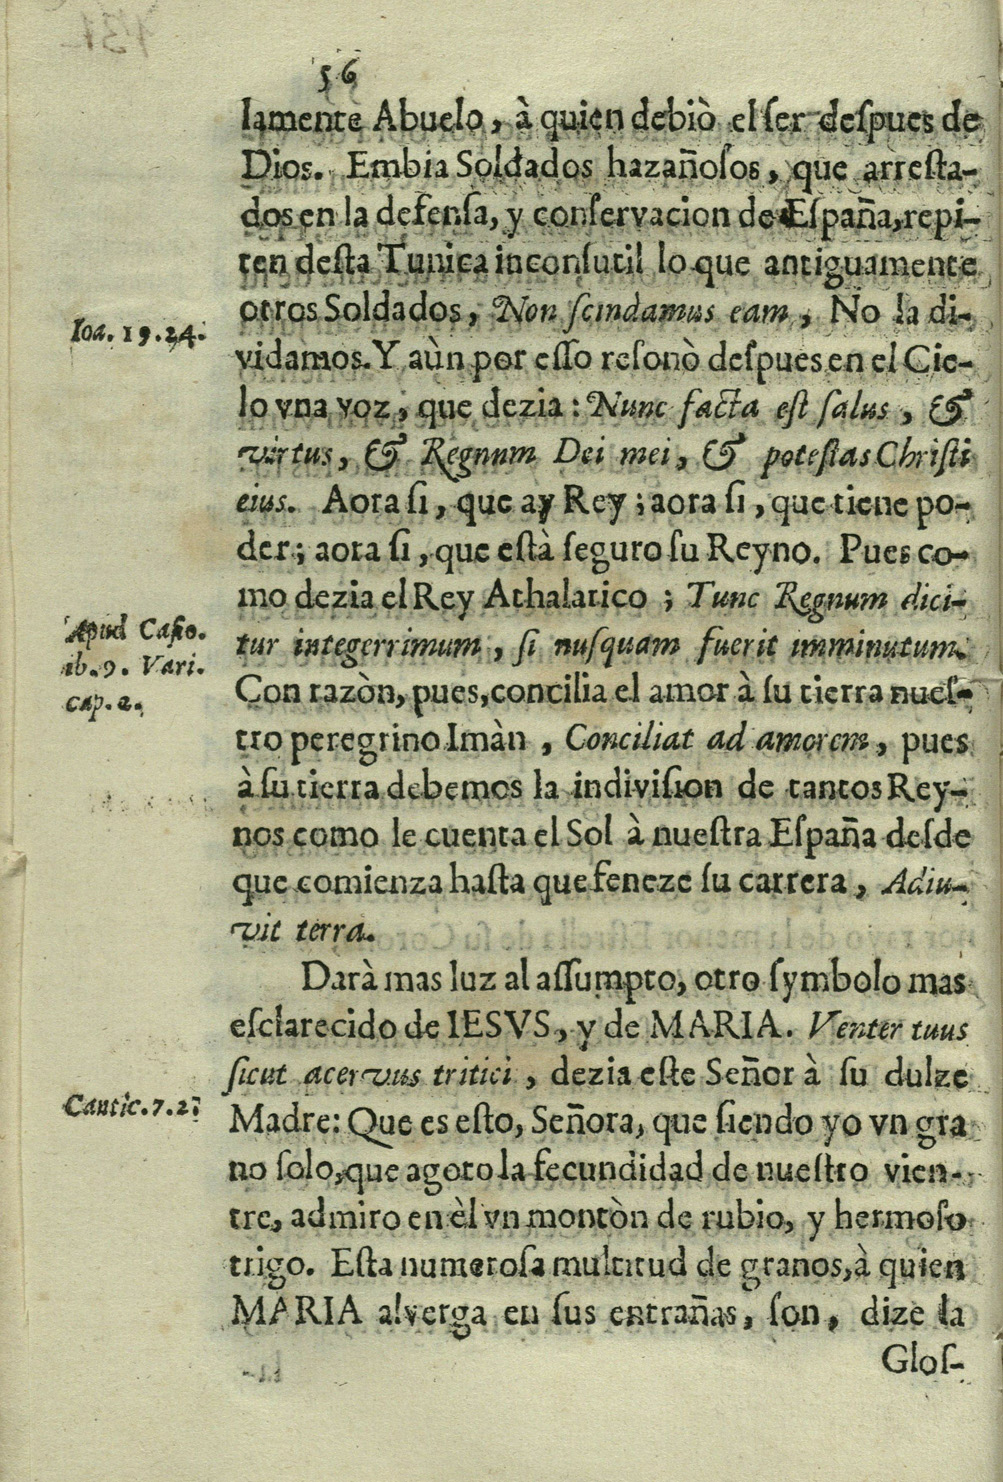 56
lamente Abuelo, à quien debiò el ser despues de
Dios. Embia Soldados hazañosos, que arresta-
dos en la defensa, y conservacion de España, repi-
ten desta Tunica inconsutil lo que antiguamente
otros Soldados, Non scindamus eam, No la di-
Ioa. 19. 24.
vidamos. Y aùn por esso resonò despues en el Cie-
lo vna voz, que dezia: Nunc facta est salus, &
virtus, & Regnum Dei mei, & potestas Christi
eius. Aora si, que ay Rey; aora si, que tiene po-
der; aora si, que està seguro su Reyno. Pues co-
mo dezia el Rey Athalarico; Tunc Regnum dici-
Apud Casio.
tur integerrimum, si nusquam fuerit imminutum.
ib. 9. Vari.
Con razòn, pues, concilia el amor à su tierra nues-
cap. 2.
tro peregrino Imàn, Conciliat ad amorem, pues
à su tierra debemos la indivision de tantos Rey-
nos como le cuenta el Sol à nuestra España desde
que comienza hasta que feneze su carrera, Adiu-
vit terra.
Darà mas luz al assumpto, otro symbolo mas
esclarecido de IESVS, y de MARIA. Venter tuus
sicut acervus tritici, dezia este Señor à su dulze
Cantic. 7. 2.
Madre: Que es esto, Señora, que siendo yo vn gra
no solo, que agoto la fecundidad de nuestro vien-
tre, admiro en èl vn montòn de rubio, y hermoso
trigo. Esta numerosa multitud de granos, à quien
MARIA alverga en sus entrañas, son, dize la
Glos-